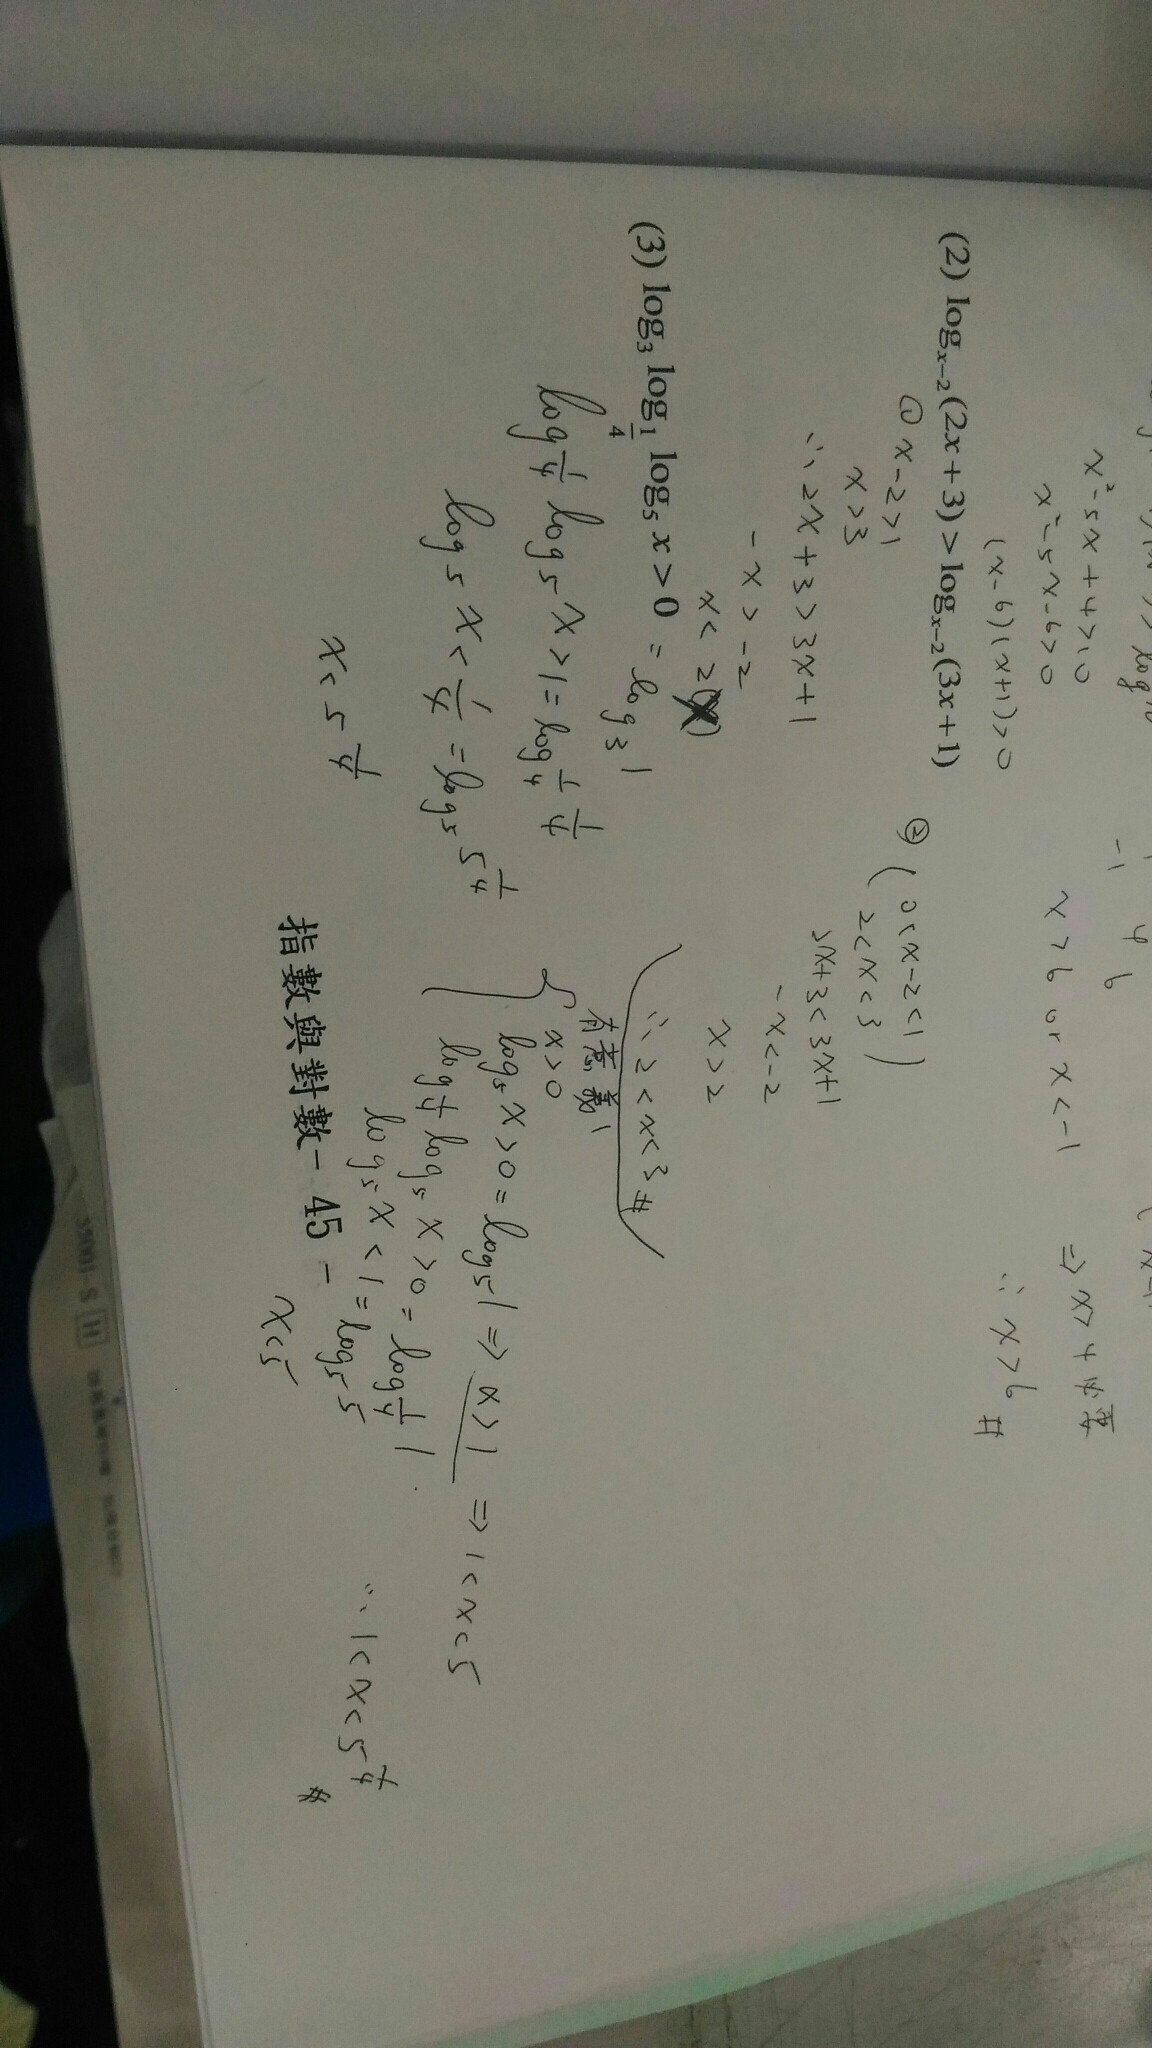 x²-5x+4>10
x²-5x-6>0
(x-6)(x+1)>0
-1 4 6
x>6 or x<-1
∴ x>6 #
(2) log_{x-2}(2x+3)>log_{x-2}(3x+1)
① x-2>1
x>3
∴ 2x+3>3x+1
-x>-2
x<2
② (0<x-2<1)
2<x<3
2x+3<3x+1
-x<-2
x>2
∴ 2<x<3 #
(3) log₃ log_{1/4} log₅ x>0 = log₃ 1
log_{1/4} log₅ x>1 = log_{1/4} 1/4
log₅ x<1/4 = log₅ 5^{1/4}
x<5^{1/4}
有意義
x>0
log₅ x>0 = log₅ 1 ⇒ x>1
log_{1/4} log₅ x>0 = log_{1/4} 1
log₅ x<1 = log₅ 5
x<5
⇒ 1<x<5
∴ 1<x<5^{1/4} #
指數與對數 - 45 -